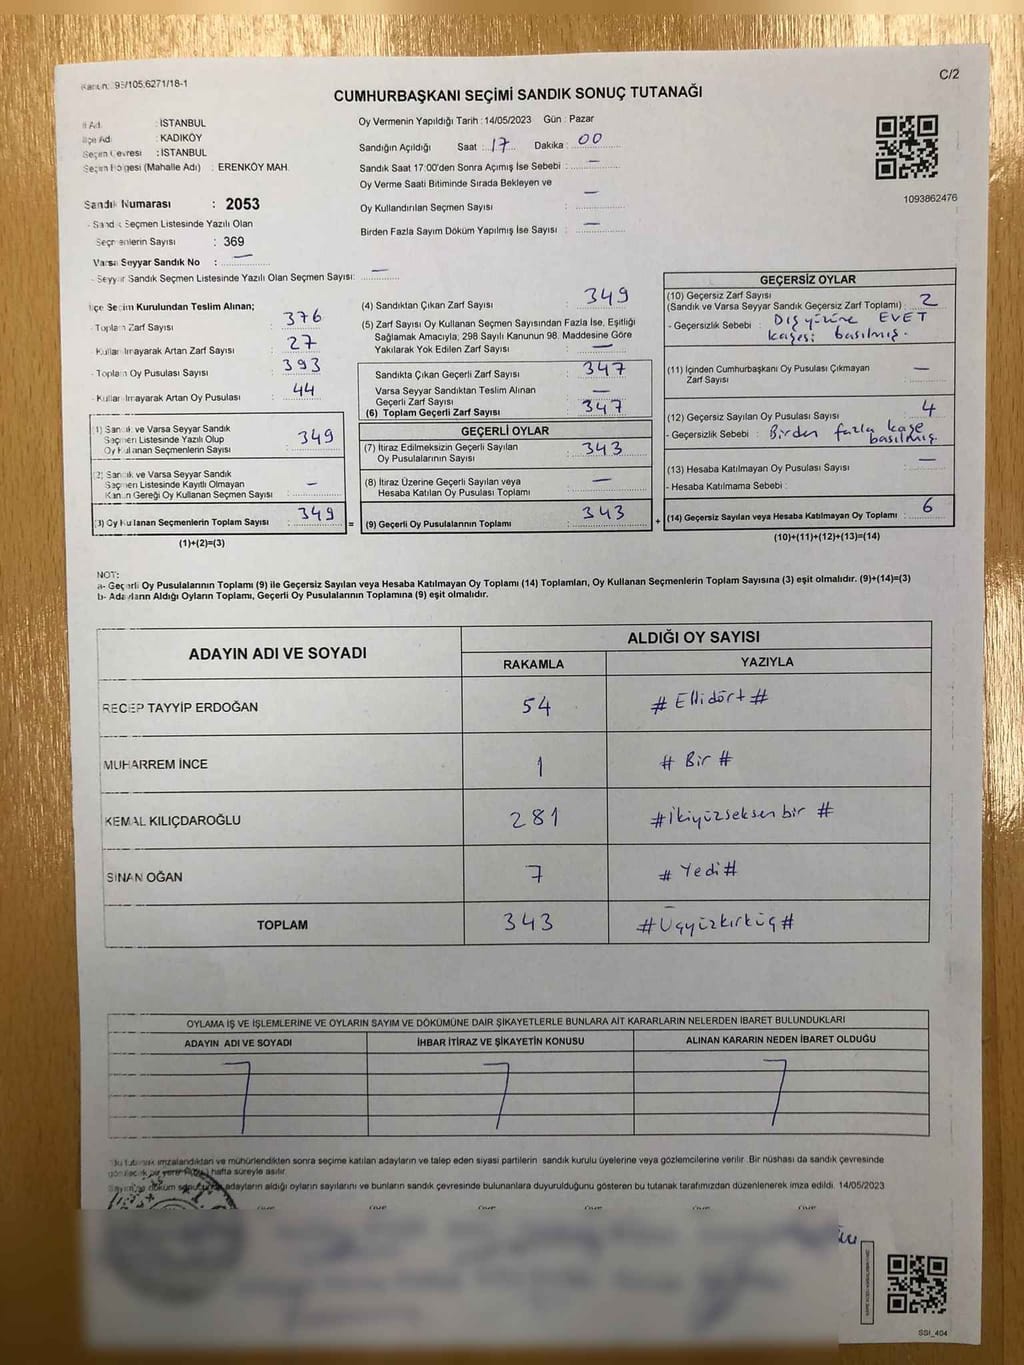 Kanun: 95/105.6271/18-1
C/2
CUMHURBAŞKANI SEÇİMİ SANDIK SONUÇ TUTANAĞI
İl Adı : İSTANBUL
İlçe Adı : KADIKÖY
Seçim Çevresi : İSTANBUL
Seçim Bölgesi (Mahalle Adı) : ERENKÖY MAH.
Sandık Numarası : 2053
- Sandık Seçmen Listesinde Yazılı Olan
Seçmenlerin Sayısı : 369
Varsa Seyyar Sandık No : —
- Seyyar Sandık Seçmen Listesinde Yazılı Olan Seçmen Sayısı: —
Oy Vermenin Yapıldığı Tarih : 14/05/2023 Gün : Pazar
Sandığın Açıldığı Saat : 17 Dakika : 00
Sandık Saat 17:00'den Sonra Açımış İse Sebebi : —
Oy Verme Saati Bitiminde Sırada Bekleyen ve
Oy Kullandırılan Seçmen Sayısı : —
Birden Fazla Sayım Döküm Yapılmış İse Sayısı : —
1093862476
İlçe Seçim Kurulundan Teslim Alınan;
- Toplam Zarf Sayısı : 376
Kullanılmayarak Artan Zarf Sayısı : 27
- Toplam Oy Pusulası Sayısı : 393
- Kullanılmayarak Artan Oy Pusulası : 44
(1) Sandık ve Varsa Seyyar Sandık
Seçmen Listesinde Yazılı Olup
Oy Kullanan Seçmenlerin Sayısı : 349
(2) Sandık ve Varsa Seyyar Sandık
Seçmen Listesinde Kayıtlı Olmayan
Kanun Gereği Oy Kullanan Seçmen Sayısı : —
(3) Oy Kullanan Seçmenlerin Toplam Sayısı : 349
(1)+(2)=(3)
(4) Sandıktan Çıkan Zarf Sayısı : 349
(5) Zarf Sayısı Oy Kullanan Seçmen Sayısından Fazla İse, Eşitliği
Sağlamak Amacıyla; 298 Sayılı Kanunun 98. Maddesine Göre
Yakılarak Yok Edilen Zarf Sayısı : —
Sandıkta Çıkan Geçerli Zarf Sayısı : 347
Varsa Seyyar Sandıktan Teslim Alınan
Geçerli Zarf Sayısı : —
(6) Toplam Geçerli Zarf Sayısı : 347
GEÇERLİ OYLAR
(7) İtiraz Edilmeksizin Geçerli Sayılan
Oy Pusulalarının Sayısı : 343
(8) İtiraz Üzerine Geçerli Sayılan veya
Hesaba Katılan Oy Pusulası Toplamı : —
= (9) Geçerli Oy Pusulalarının Toplamı : 343
GEÇERSİZ OYLAR
(10) Geçersiz Zarf Sayısı
(Sandık ve Varsa Seyyar Sandık Geçersiz Zarf Toplamı) : 2
- Geçersizlik Sebebi : Dış yüzüne EVET
kaşesi basılmış.
(11) İçinden Cumhurbaşkanı Oy Pusulası Çıkmayan
Zarf Sayısı : —
(12) Geçersiz Sayılan Oy Pusulası Sayısı : 4
- Geçersizlik Sebebi : Birden fazla kaşe
basılmış.
(13) Hesaba Katılmayan Oy Pusulası Sayısı : —
- Hesaba Katılmama Sebebi :
+ (14) Geçersiz Sayılan veya Hesaba Katılmayan Oy Toplamı : 6
(10)+(11)+(12)+(13)=(14)
NOT:
a- Geçerli Oy Pusulalarının Toplamı (9) ile Geçersiz Sayılan veya Hesaba Katılmayan Oy Toplamı (14) Toplamları, Oy Kullanan Seçmenlerin Toplam Sayısına (3) eşit olmalıdır. (9)+(14)=(3)
b- Adayların Aldığı Oyların Toplamı, Geçerli Oy Pusulalarının Toplamına (9) eşit olmalıdır.
ADAYIN ADI VE SOYADI
ALDIĞI OY SAYISI
RAKAMLA YAZIYLA
RECEP TAYYİP ERDOĞAN 54 # Ellidört #
MUHARREM İNCE 1 # Bir #
KEMAL KILIÇDAROĞLU 281 #İkiyüzseksenbir #
SİNAN OĞAN 7 # Yedi #
TOPLAM 343 #Üçyüzkırküç#
OYLAMA İŞ VE İŞLEMLERİNE VE OYLARIN SAYIM VE DÖKÜMÜNE DAİR ŞİKAYETLERLE BUNLARA AİT KARARLARIN NELERDEN İBARET BULUNDUKLARI
ADAYIN ADI VE SOYADI İHBAR İTİRAZ VE ŞİKAYETİN KONUSU ALINAN KARARIN NEDEN İBARET OLDUĞU
Bu tutanak imzalandıktan ve mühürlendikten sonra seçime katılan adayların ve talep eden siyasi partilerin sandık kurulu üyelerine veya gözlemcilerine verilir. Bir nüshası da sandık çevresinde
görülecek bir yere hafta süreyle asılır.
döküm adayların aldığı oyların sayılarını ve bunların sandık çevresinde bulunanlara duyurulduğunu gösteren bu tutanak tarafımızdan düzenlenerek imza edildi. 14/05/2023
SSI_404